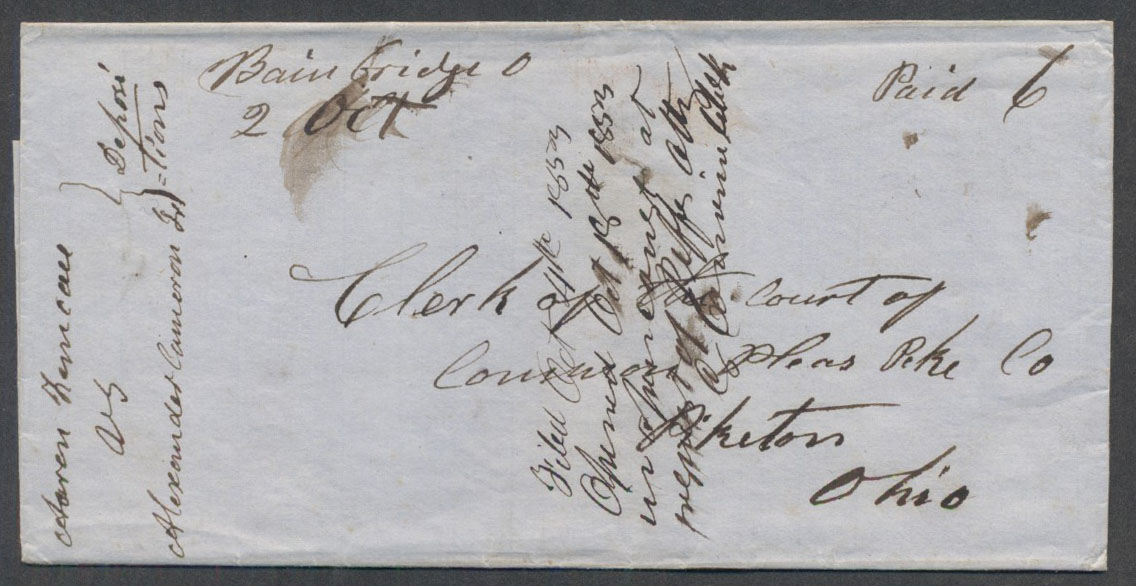 Bainbridge O
2 Oct
Paid 6
Clerk of the Court of
Common Pleas Pike Co
Piketon
Ohio
Aaron Kincade
vs
Alexander Cameron
Deposi
=tions
Filed Oct 4th 1853
Opened Oct 18th 1853
in pursuance at
request of Plffs atty